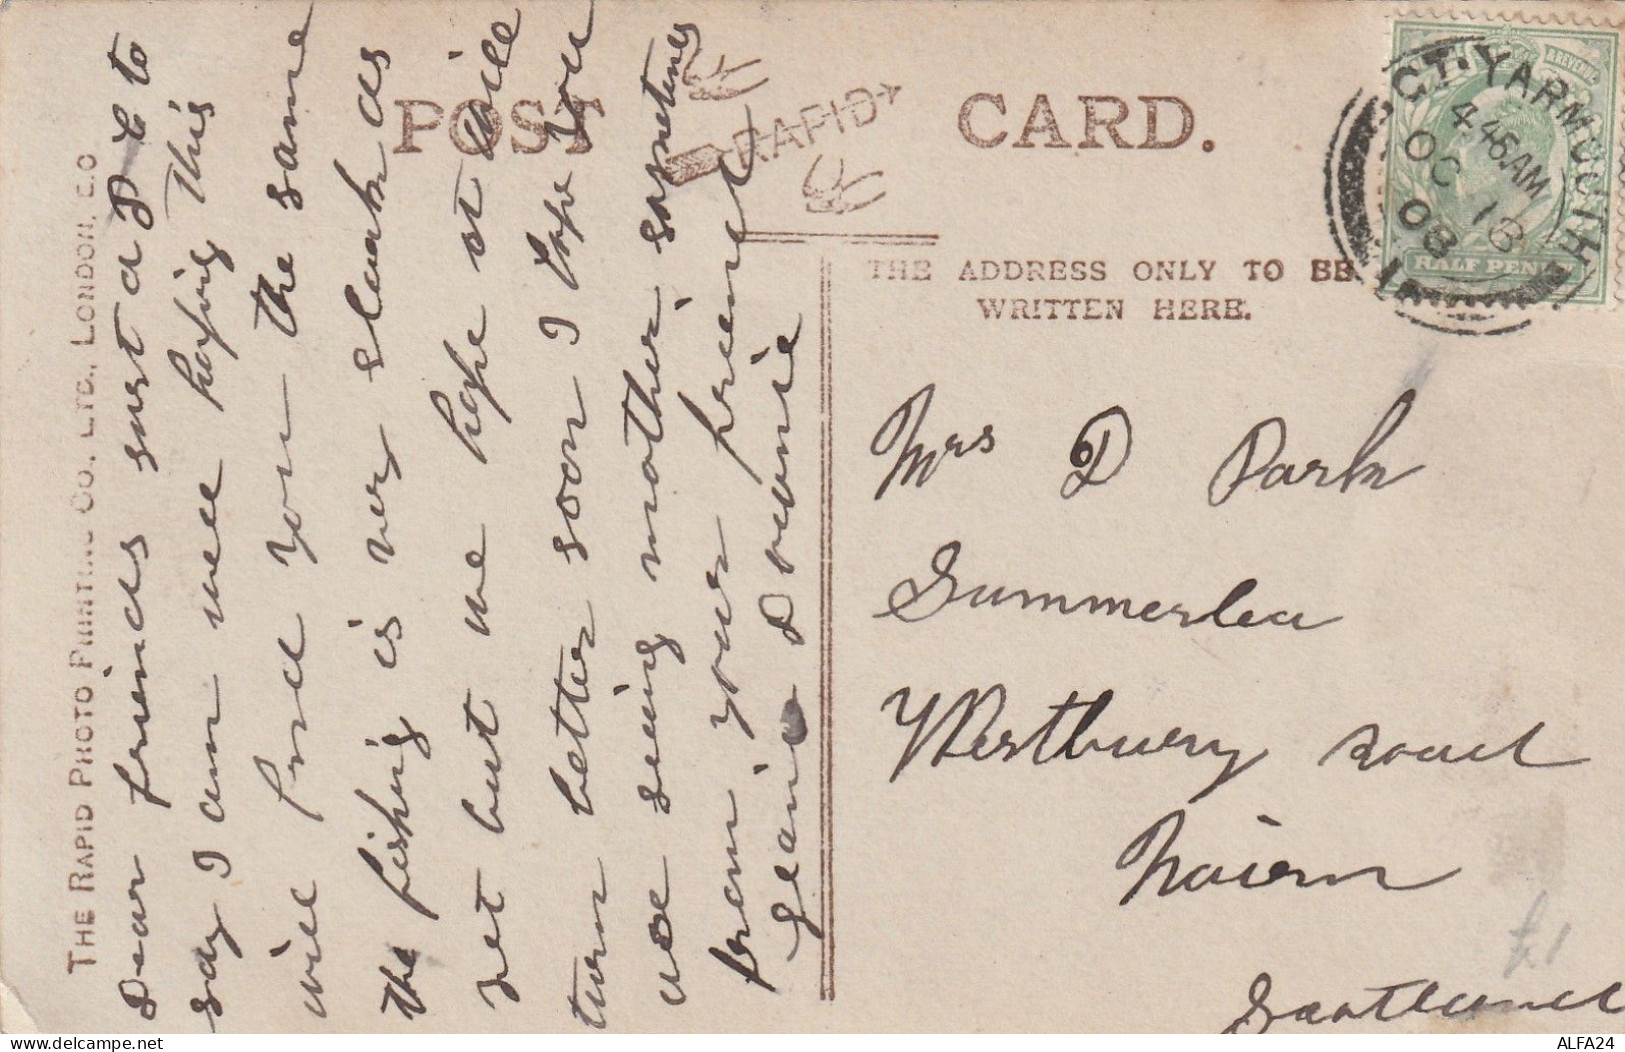 POST CARD.
RAPID
THE RAPID PHOTO PRINTING CO., LTD., LONDON, E.C
THE ADDRESS ONLY TO BE
WRITTEN HERE.
GT. YARMOUTH
4.45 AM
OC 13
08
& REVENUE
HALF PENNY
Dear friends Just a P C to
say I am well hoping this
will find you the same
the fishing is very slack as
yet but we hope it will
turn better soon I hope you
are seing mother sometimes
from your friend
Jeanie Downie
Mrs D Park
Summerlea
Westbury road
Nairn
Scotland
£1
ALFA24